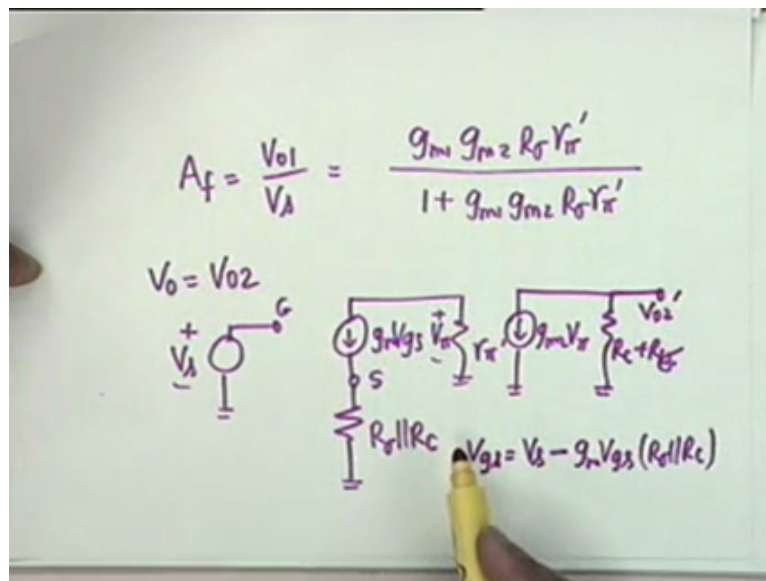 A_f = V_01 / V_s = g_m1 g_m2 R_σ r_π' / 1 + g_m1 g_m2 R_σ r_π'
V_0 = V_02
G
+ V_s −
g_m V_gs
+ V_π −
r_π
g_m2 V_π
V_02'
S
R_σ||R_C
V_gs = V_s − g_m V_gs (R_σ||R_C)